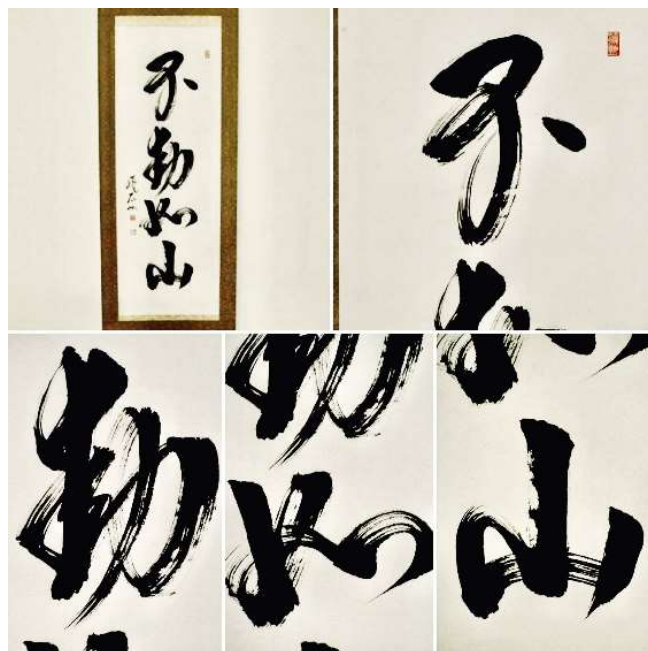 不動如山